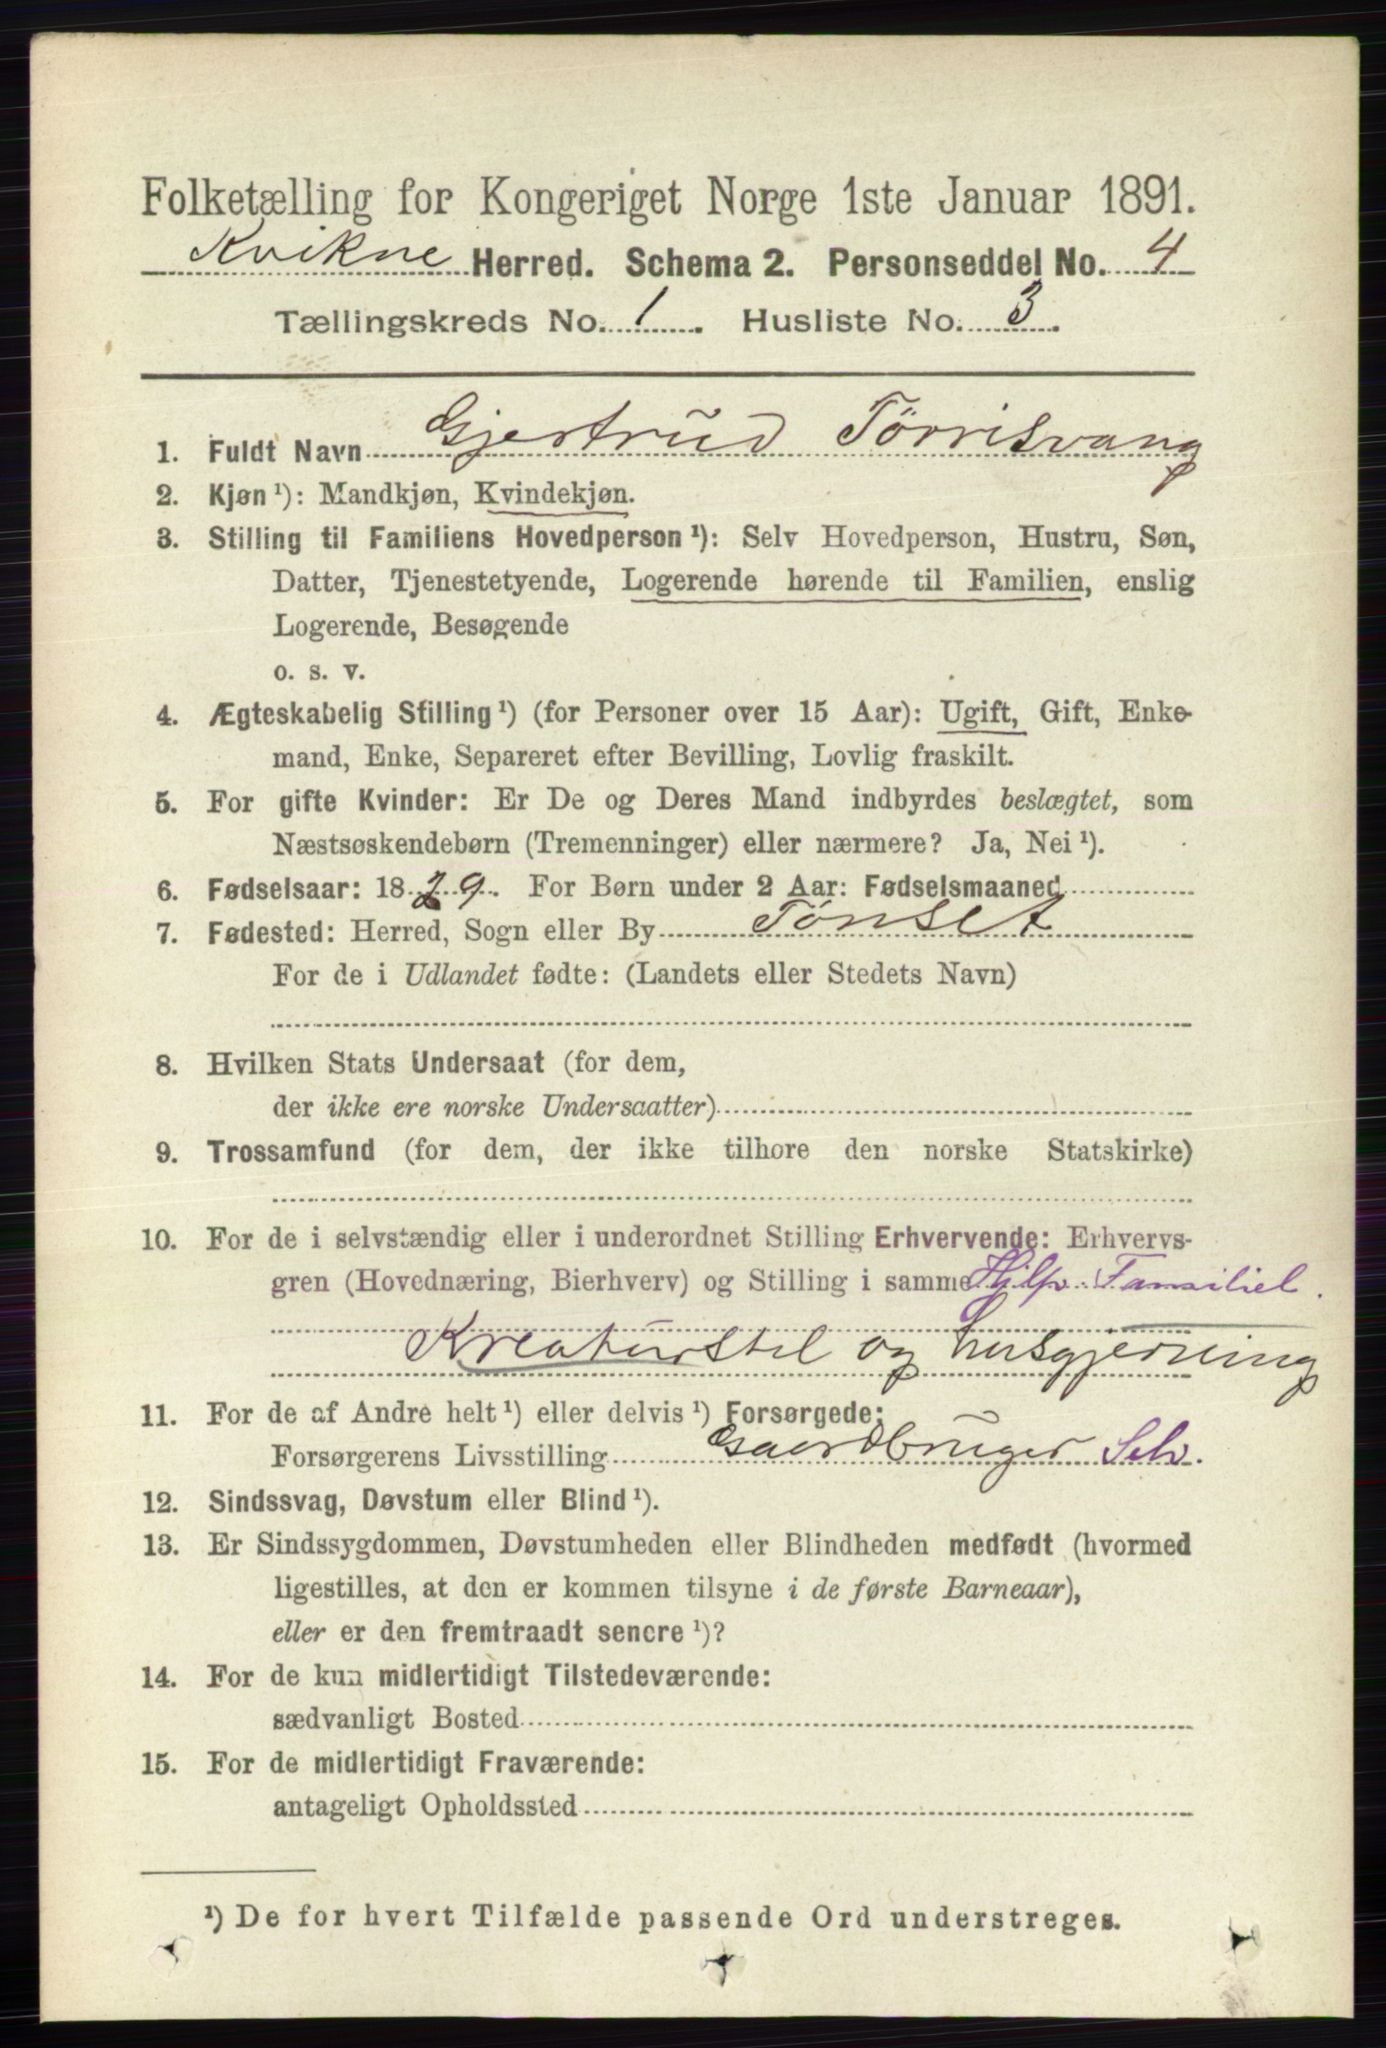 Folketælling for Kongeriget Norge 1ste Januar 1891.
Kvikne Herred. Schema 2. Personseddel No. 4
Tællingskreds No. 1. Husliste No. 3.
1. Fuldt Navn Gjertrud Törrisvang
2. Kjøn ¹): Mandkjøn, Kvindekjøn.
3. Stilling til Familiens Hovedperson ¹): Selv Hovedperson, Hustru, Søn,
Datter, Tjenestetyende, Logerende hørende til Familien, enslig
Logerende, Besøgende
o. s. v.
4. Ægteskabelig Stilling ¹) (for Personer over 15 Aar): Ugift, Gift, Enke-
mand, Enke, Separeret efter Bevilling, Lovlig fraskilt.
5. For gifte Kvinder: Er De og Deres Mand indbyrdes beslægtet, som
Næstsøskendebørn (Tremenninger) eller nærmere? Ja, Nei ¹).
6. Fødselsaar: 1829. For Børn under 2 Aar: Fødselsmaaned
7. Fødested: Herred, Sogn eller By Tönset
For de i Udlandet fødte: (Landets eller Stedets Navn)
8. Hvilken Stats Undersaat (for dem,
der ikke ere norske Undersaatter)
9. Trossamfund (for dem, der ikke tilhøre den norske Statskirke)
10. For de i selvstændig eller i underordnet Stilling Erhvervende: Erhvervs-
gren (Hovednæring, Bierhverv) og Stilling i samme Hilp. Familiel.
Kreaturstel og husgjerning
11. For de af Andre helt ¹) eller delvis ¹) Forsørgede:
Forsørgerens Livsstilling Gaardbruger Selv.
12. Sindssvag, Døvstum eller Blind ¹).
13. Er Sindssygdommen, Døvstumheden eller Blindheden medfødt (hvormed
ligestilles, at den er kommen tilsyne i de første Barneaar),
eller er den fremtraadt senere ¹)?
14. For de kun midlertidigt Tilstedeværende:
sædvanligt Bosted
15. For de midlertidigt Fraværende:
antageligt Opholdssted
¹) De for hvert Tilfælde passende Ord understreges.